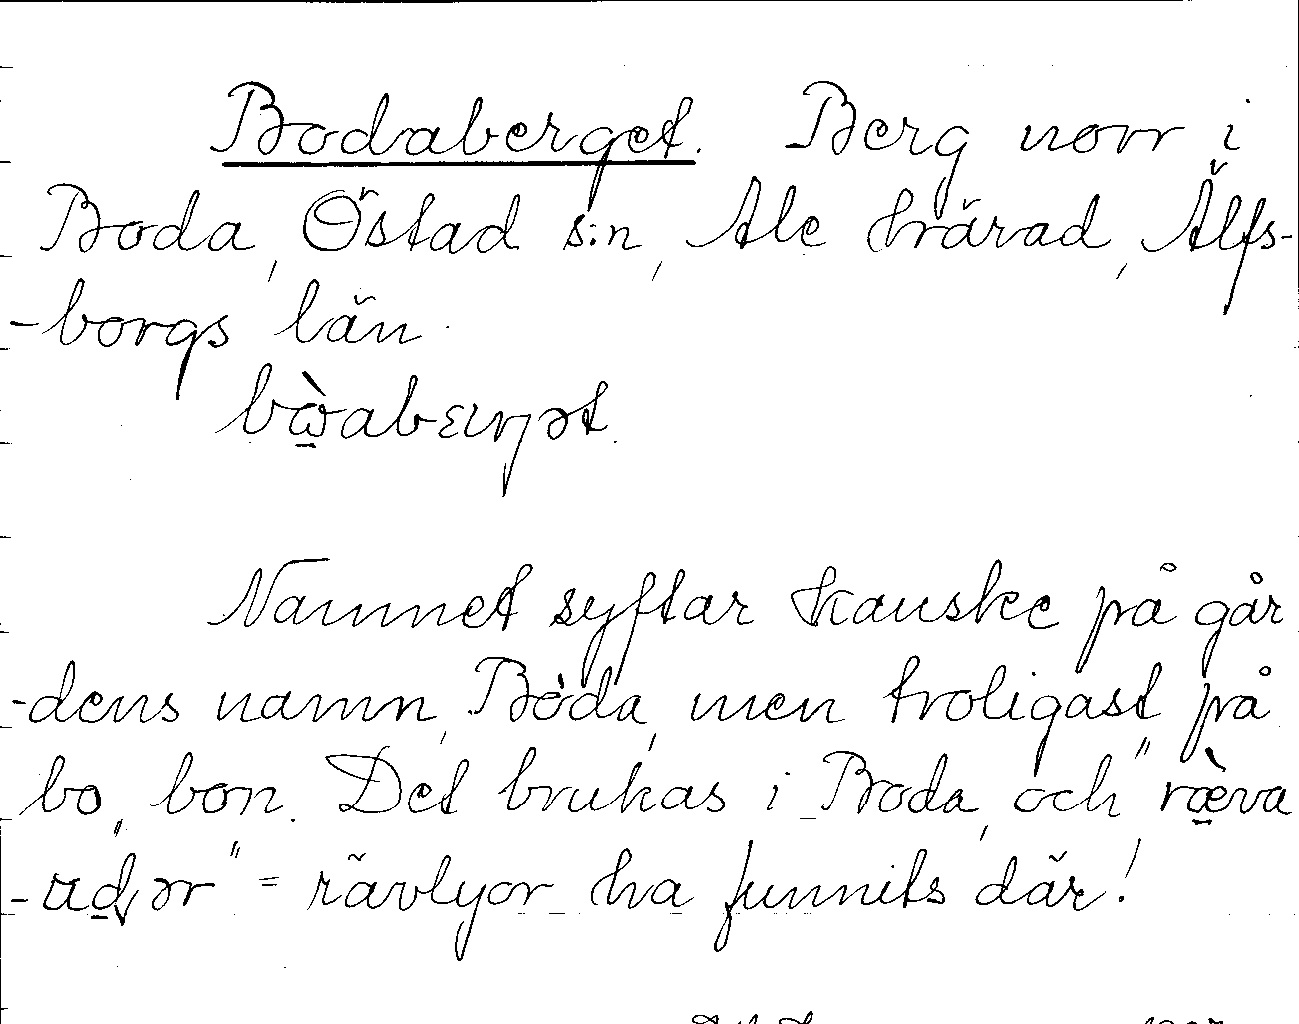 Bodaberget. Berg norr i
Boda, Östad s:n, Ale härad, Älfs-
-borgs län.
Namnet syftar kanske på går
-dens namn, Boda, men troligast på
bo, bon. Det brukas i Boda, och "ræva
= rävlyor ha funnits där!